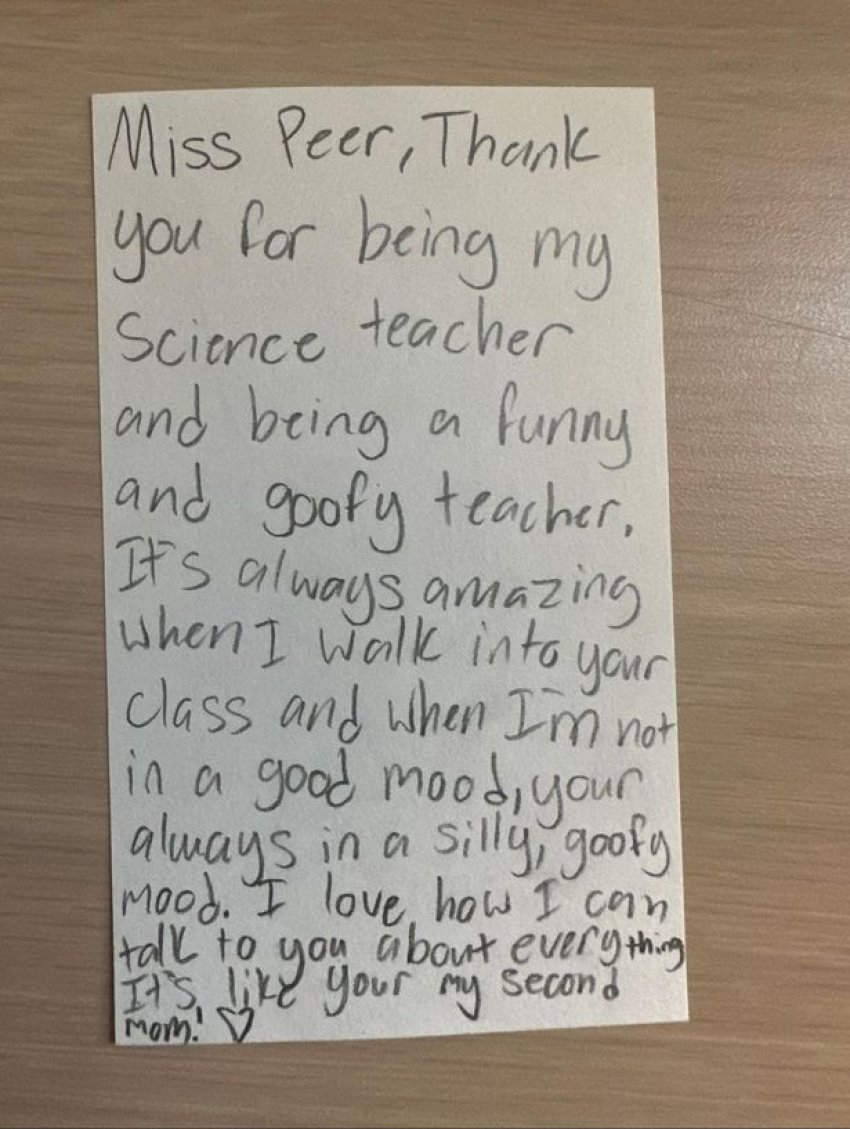 Miss Peer, Thank
you for being my
Science teacher
and being a funny
and goofy teacher.
It's always amazing
when I walk into your
class and when I'm not
in a good mood, your
always in a silly, goofy
mood. I love how I can
talk to you about everything
It's like your my second
mom! ♡